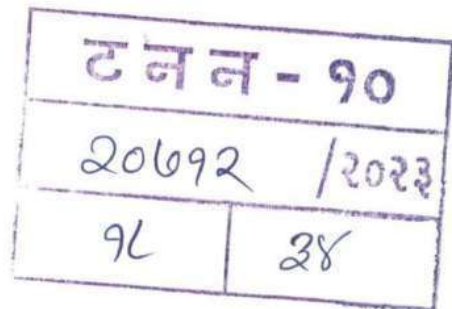 ट न न - १०
२०७१२ /२०२३
१८ ३४